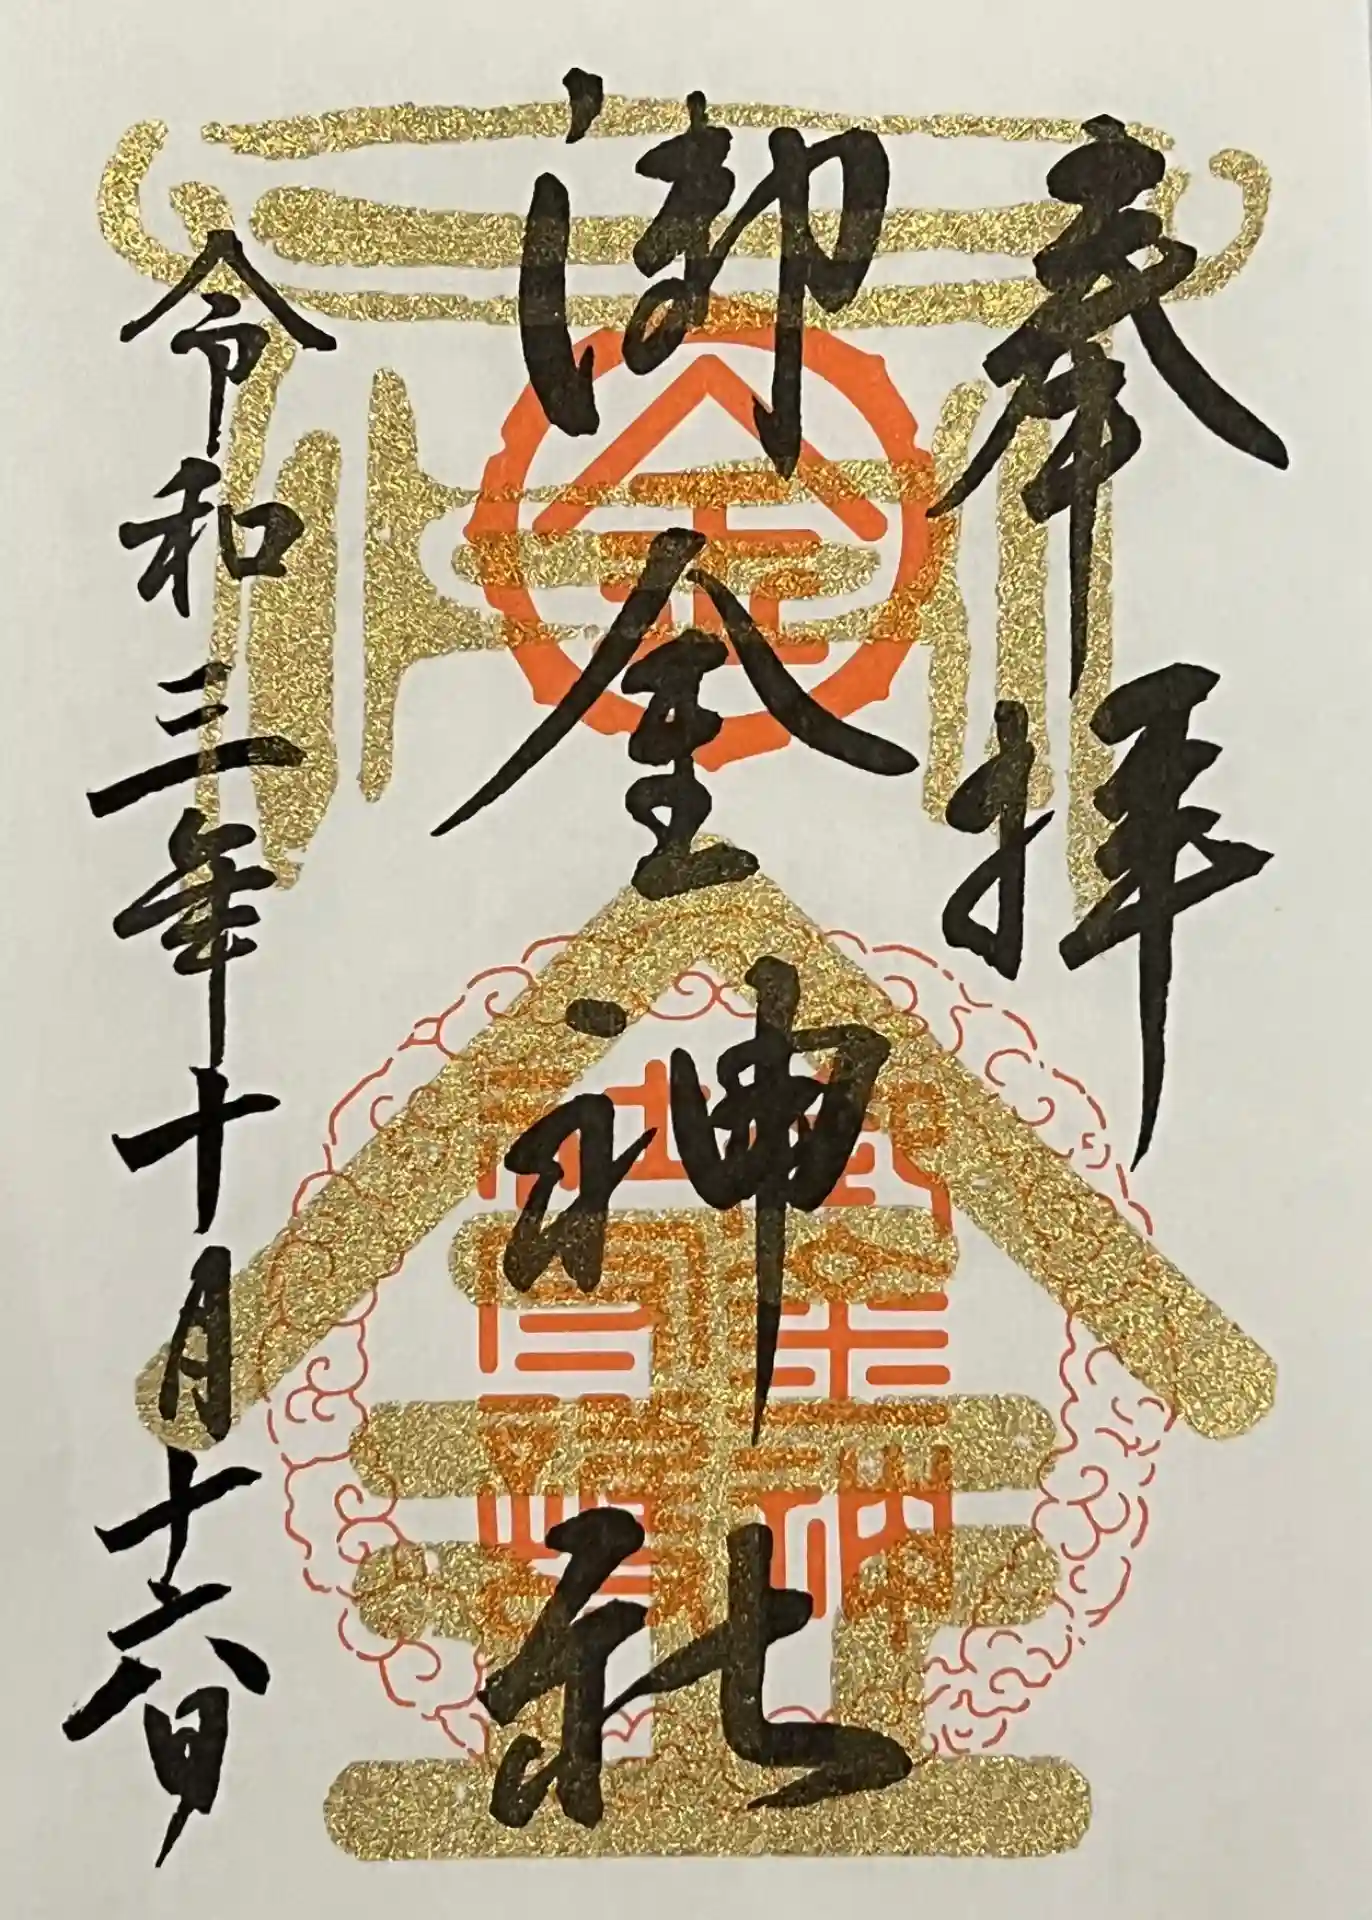 奉拝
御金神社
令和三年十月十六日
金
御金神
社司印璽